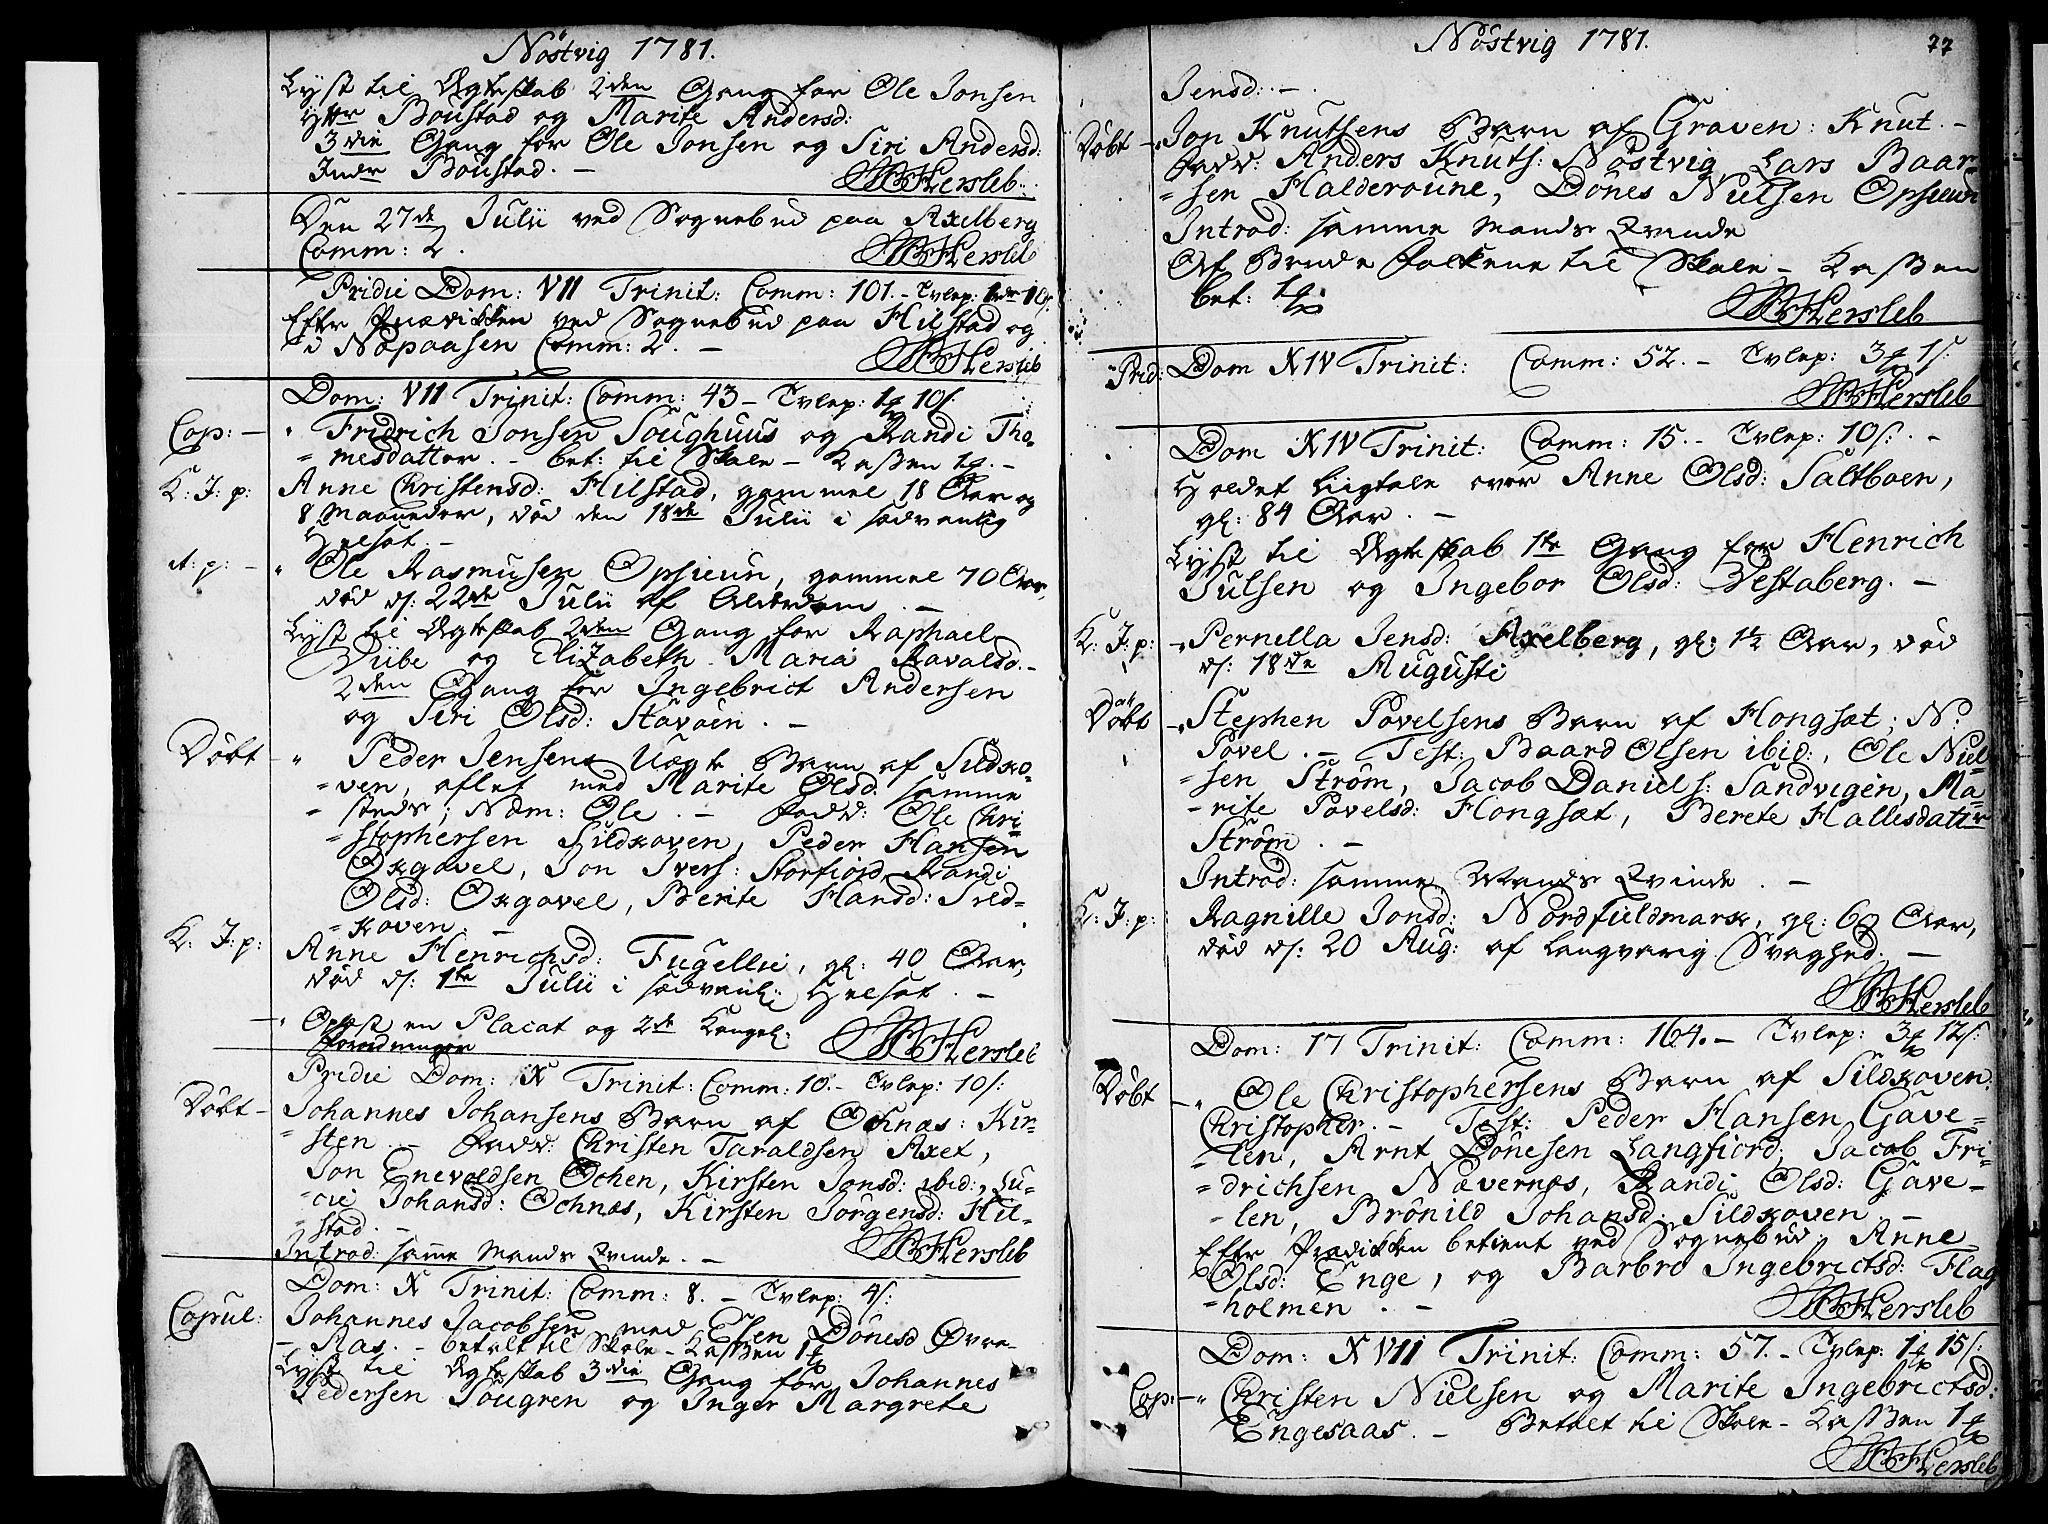 Nöstvig 1781.
Lyst til Ægteskab 2den Gang for Ole Jonsen
Yttr Boustad og Marite Andersd:
3die Gang for Ole Jonsen og Siri Andersd:
Indr Boustad. –
Hersleb.
Den 27de Julii ved Sognebud paa Axelberg
Comm: 2.
Hersleb
Pridie Dom: VII Trinit: Comm: 101. – Tvlep: 10 s:
Efter Prædikken ved Sognebud paa Hilstad og
i Nopaasen Comm: 2. –
Hersleb
Dom: VII Trinit: Comm: 43 – Tvlep: 1 10 s:
Cop: – Fridrich Jonsen Soughuus og Randi Tho-
= mesdatter. – bet: til Skole-Kassen 1 –
K: J: p: Anne Christensd: Hilstad, gammel 18 Aar og
8 Maaneder, död den 18de Julii i sædvanlig
Helsot. –
A: p: – Ole Rasmusen Opsieun, gammel 70 Aar,
död d: 22de Julii af Alderdom. –
Lyst til Ægteskab 2den Gang for Raphael
Vübe og Elizabeth Maria Ravalsd. –
2den Gang for Ingebrict Andersen
og Siri Olsd: Stavåen. –
Döbt – Peder Jensens Uægte Barn af Sildho-
= ven, aflet med Marite Olsd: samme
= steds; Nom: Ole. – Fadd: Ole Chri-
= stophersen Sildhoven, Peder Hansen
Oxgavel, Jon Ivers: Storfiord, Randi
Olsd: Oxgavel, Berite Hansd: Sild-
= hoven. –
K: J: p: Anne Henrichsd: Fugellie, gl: 40 Aar,
död d: 1ste Julii i sædvanl: Helsot. –
– Oplæst en Placat og 2de Kongel:
Forordninger
Hersleb
Pridie Dom: X Trinit: Comm: 10. – Tvlep: 10 s:
Döbt – Johannes Johansens Barn af Ochnæs: Kir-
= sten. – Fadd: Christen Taraldsen Axet,
Jon Enevoldsen Ochen, Kirsten Jonsd: ibid:, Lu-
= cie Johansd: Ochnæs, Kirsten Jörgensd: Hil-
= stad. –
Introd: samme Mands Qvinde. –
Hersleb
Dom: X Trinit: Comm: 8. – Tvlep: 4 s:
Copul: Johannes Jacobsen med Elen Dönesd Övre-
– Aas. – betalt til Skole-Kassen 1
Lyst til Ægteskab 3die Gang for Johannes
Pedersen Sougren og Inger Margrete
Nöstvig 1781. 77
Jensd: –
Döbt – Jon Knutsens Barn af Graven: Knut. –
Fadd: Anders Knuts: Nöstvig, Lars Baar-
= sen Halderoune, Dönes Nielsen Opsieun
Introd: samme Mands Qvinde
Af Brude Folkene til Skole-Kassen
bet: 1
Hersleb
Prid: Dom XIV Trinit: Comm: 52. – Tvlep: 3 1 s:
Hersleb
Dom XIV Trinit: Comm: 15. – Tvlep: 10 s: –
Holdet Liigtale over Anne Olsd: Saltboen,
gl: 84 Aar. –
Lyst til Ægteskab 1ste Gang for Henrich
Julsen og Ingebor Olsd: Vestaberg. –
K: J: p: – Pernilla Jensd: Axelberg, gl: 1½ Aar, död
d: 18de Augusti
Döbt – Stephen Povelsens Barn af Hongsæt; N:
Povel. – Test: Baard Olsen ibid:, Ole Niel-
= sen Ström, Jacob Daniels: Sandvigen, Ma-
= rite Povelsd: Hongsæt, Berete Hallesdatter
Ström. –
Introd: samme Mands Qvinde. –
K: J: p: Ragnille Jonsd: Nordfieldmark, gl: 60 Aar,
död d: 20 Aug: af langvarig Svaghed. –
Hersleb
Dom: 17 Trinit: Comm: 164. – Tvlep: 3 12 s:
Döbt – Ole Christophersens Barn af Sildhoven:
Christopher. – Test: Peder Hansen Gave-
= len, Arnt Dönesen Langfiord, Jacob Fri-
= drichsen Nævernæs, Randi Olsd: Gave-
= len, Brönild Johansd: Sildhoven. –
Efter Prædikken betient ved Sognebud Anne
Olsd: Enge, og Barbro Ingebrictsd: Flag
= holmen. –
Hersleb
Dom: XVII Trinit: Comm: 57. – Tvlep: 1 15 s:
Cop: – Christen Nielsen og Marite Ingebrictsd:
Engesaas. – Betalt til Skole-Kassen 1
Hersleb